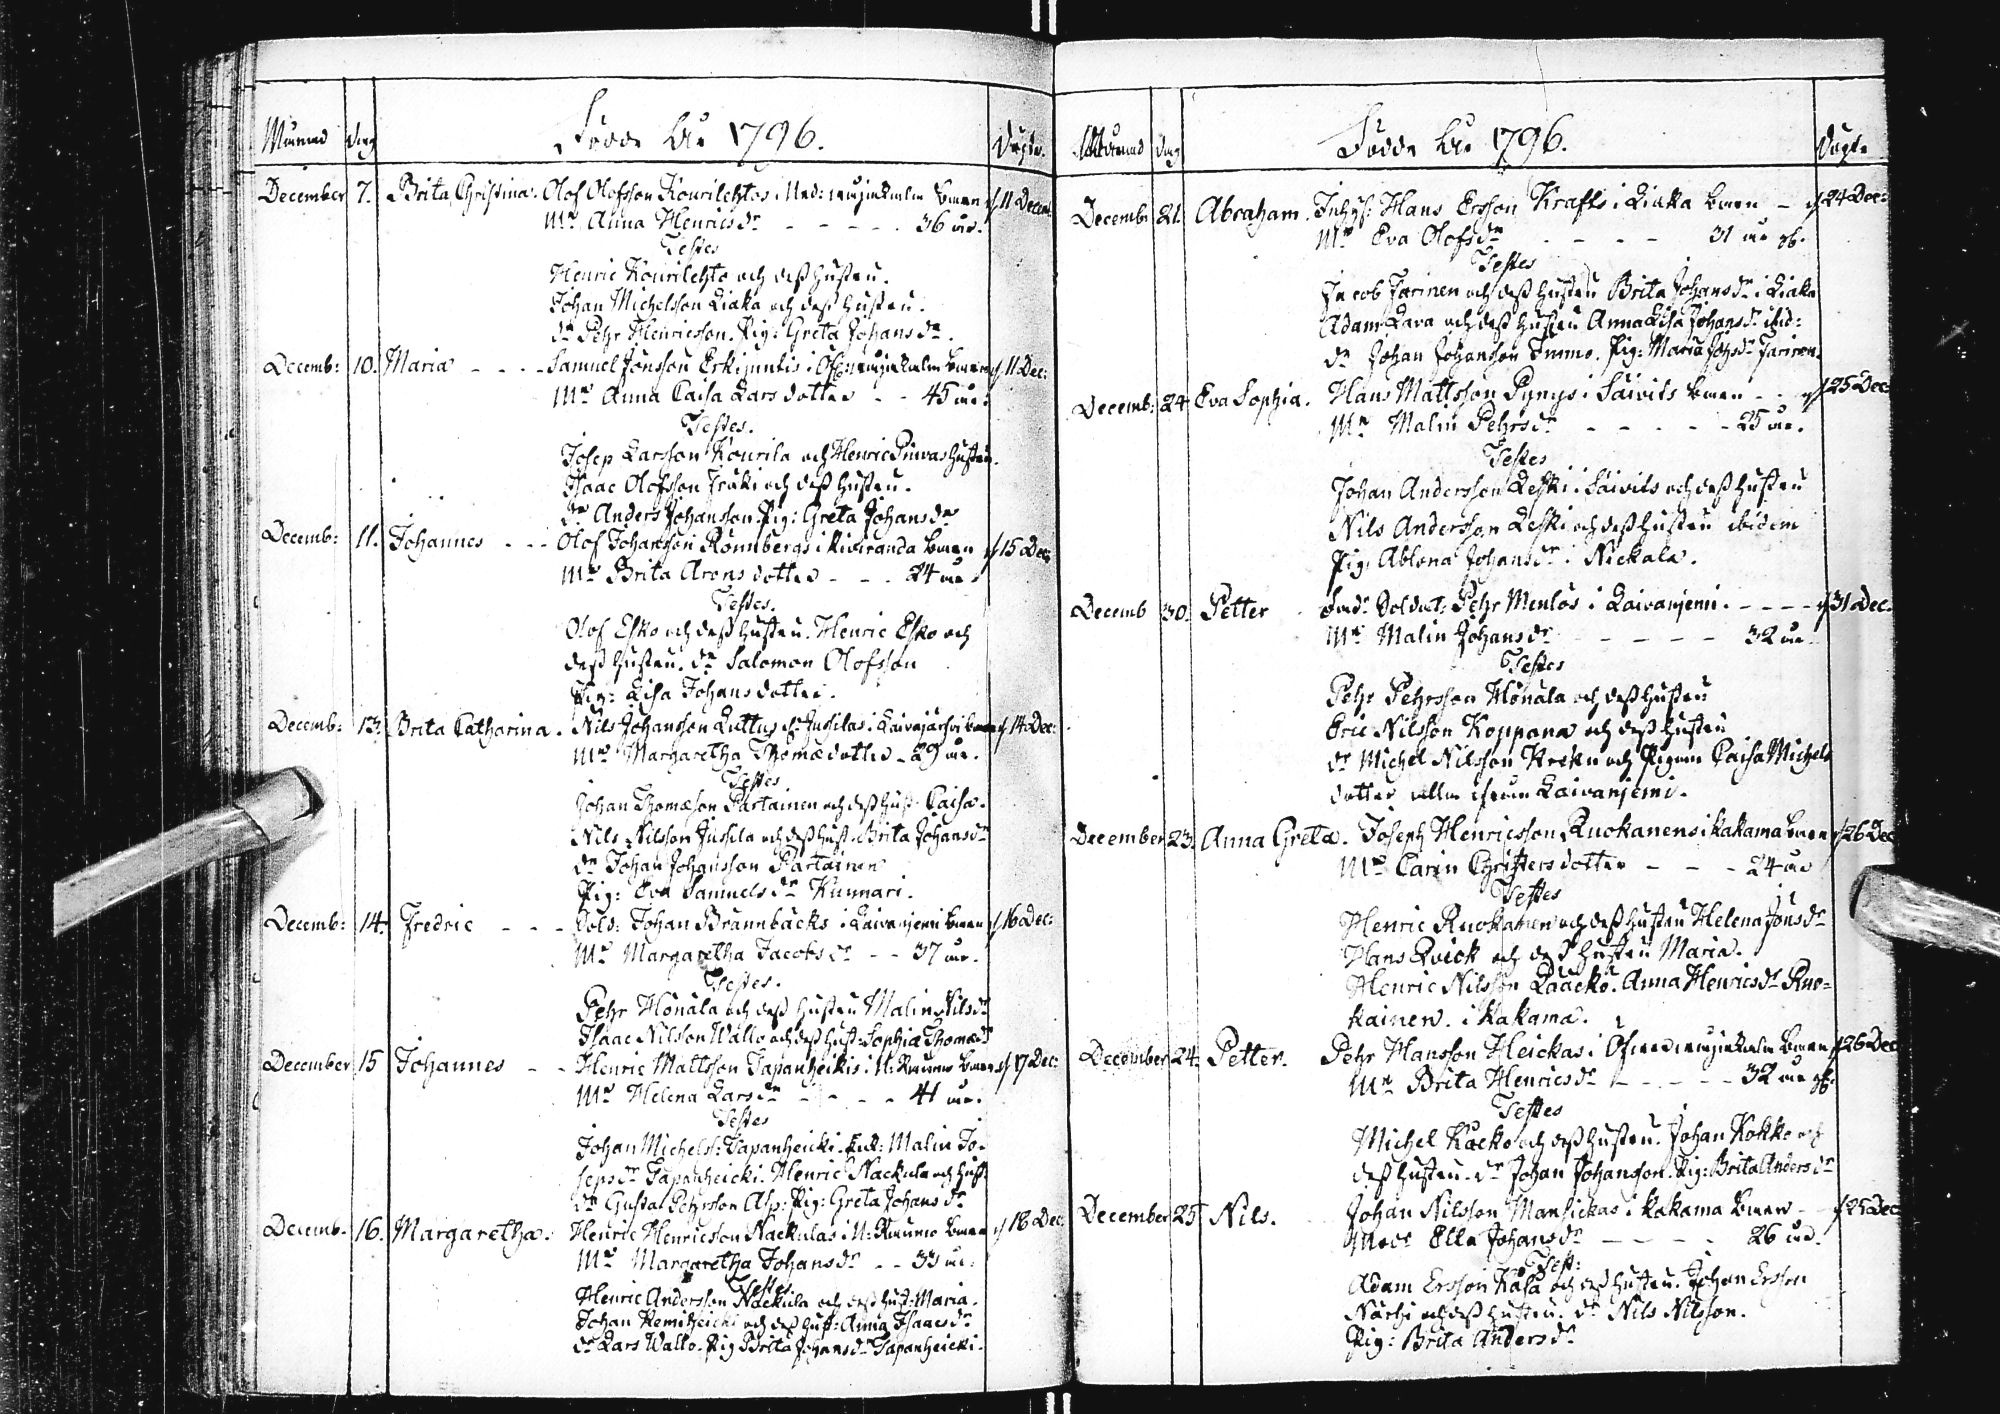 Månad Dag Födde År 1796. Döpte.
December 7. Brita Christina. Olof Olofsson Kourilehtos i Ned: barn 11 Decem:
Mr Anna Henricsdr - - - - - 36 år.
Testes
Henric Kourilehto och dess hustru.
Johan Michelsson Liaka och dess hustru.
dr Pehr Henricsson. Pig: Greta Johansdr.
Decemb: 10. Maria - - - - Samuel Jönsson Erkijuntis i barn 11 Dec:
Mr Anna Caisa Larsdotter - - 45 år.
Testes.
Josep Larsson Kourila och Henric Piuvas hustru.
Isaac Olofsson Iruki och dess hustru.
dr Anders Johansson. Pig: Greta Johansdr
Decemb: 11. Johannes - - - Olof Johansson Rönnbergs i Kiviranda barn 15 Dec:
Mr Brita Aronsdotter - - - 24 år
Testes.
Olof Esko och dess hustru. Henric Esko och
dess hustru. dr Salomon Olofsson
Pig: Lisa Johansdotter.
Decemb: 13. Brita Catharina. Nils Johansson Luttus el: Jussilas i Kaivajärfvi barn 14 Dec:
Mr Margaretha Thomædotter - 29 år.
Testes
Johan Thomæson Partainen och dess hust. Caisa.
Nils Nilsson Jussila och dess hust. Brita Johansdr
dr Johan Johansson Partainen
Pig: Eva Samuelsdr Kunnari.
Decemb: 14. Fredric - - - Sold: Johan Brännbäcks i Laivanjemi barn 16 Dec:
Mr Margaretha Jacobsdr - - 37 år.
Testes.
Pehr Mönäla och dess hustru Malin Nilsdr
Isaac Nilsson Wallo och dess hust: Sophia Thomædr
December 15 Johannes - - Henric Mattsson Tapanheikis i N: Raumo barn 17 Dec:
Mr Helena Larsdr - - - - 41 år.
Testes
Johan Michelss: Tapanheicki. Malin Jo-
sepsdr Tapanheicki. Henric Nackula och hust:
dr Gustaf Pehrsson Asp: Pig: Greta Johansdr
Decemb. 16. Margaretha. Henric Henricsson Nackulas i N: Raumo barn 18 Dec:
Mr Margaretha Johansdr - - 33 år.
Testes
Henric Andersson Nackula och dess hust: Maria.
Johan Kemiheicki och dess hust: Anna Isaacsdr
dr Lars Wallo. Pig Brita Johansdr Tapanheicki.
Månad Dag Födde År 1796. Döpt.
Decemb: 21. Abraham. Inhys: Hans Ersson Krafts i Liaka barn - 24 Dec:
Mr Eva Olofsdr - - - - 31 år gl.
Testes
Jacob Jarinen och dess hustru Brita Johansdr i Liaka
Adam Lava och dess hustru Anna Lisa Johansdr ibid:
dr Johan Johansson Immo. Pig: Maria Johsdr Jarinen.
Decemb: 24 Eva Sophia. Hans Mattsson Pynys i Säivits barn - - 25 Dec:
Mr Malin Pehrsdr - - - - - 25 år.
Testes
Johan Andersson Leski i Säivits och dess hustru
Nils Andersson Leski och dess hustru ibidem
Pig: Ablona Johansdr i Nickala.
Decemb 30. Petter Soldat: Pehr Menlös i Laivanjemi. - - - - 31 Dec.
Mr Malin Johansdr - - - - - 32 år.
Testes
Pehr Pehrsson Mönäla och dess hustru
Eric Nilsson Koppana och dess hustru
dr Michel Nilsson Krekn och Pigan Caisa Michels
dotter alla ifrån Laivanjemi.
December 23. Anna Greta. Joseph Henricsson Ruokanens i Kakama barn 26 Dec
Mr Carin Christersdotter - - - 24 år
Testes
Henric Ruokanen och dess hustru Helena Jönsdr
Hans Qvick och dess hustru Maria.
Henric Nilsson Laacko. Anna Henricsdr Ruo-
kainen. i Kakama.
December 24. Petter. Pehr Hansson Heickas i barn 26 Dec
Mr Brita Henricsdr - - - - - 32 år gl.
Testes
Michel Kaeko och dess hustru. Johan Kokko och
dess hustru. dr Johan Johansson. Pig: Brita Andersdr
December 25 Nils. Johan Nilsson Mansickas i Kakama barn - 25 Dec
Modr Ella Johansdr - - - - 26 år.
Test:
Adam Ersson Kasa och dess hustru. Johan Ersson
Närhi och dess hustru. dr Nils Nilsson.
Pig: Brita Andersdr